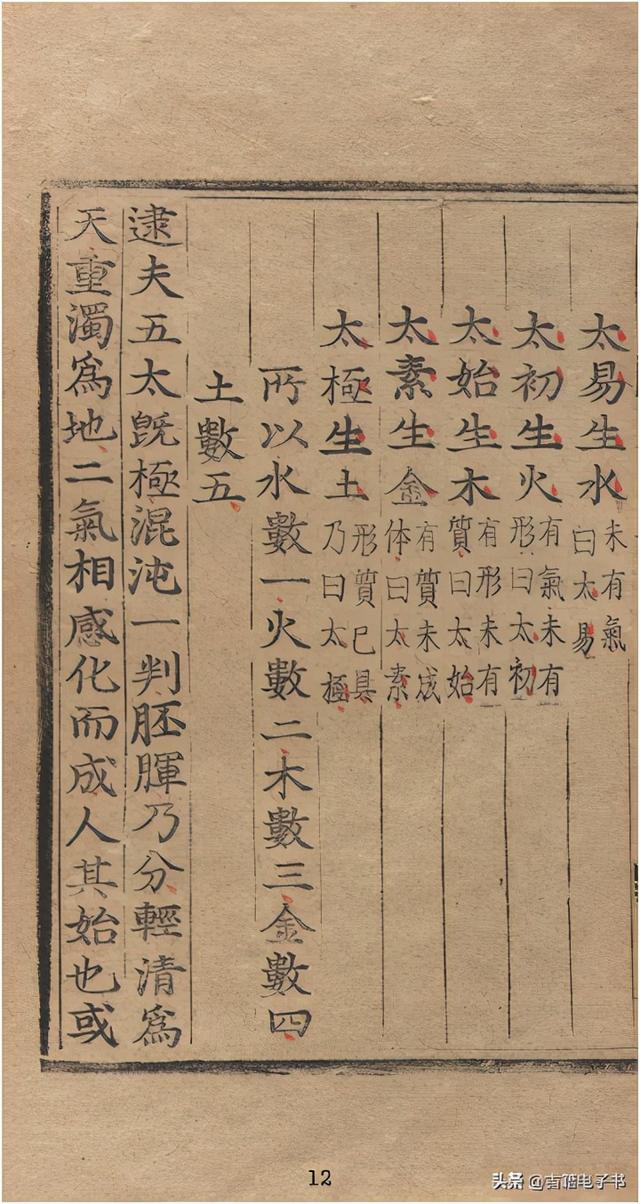 太易生水未有氣曰太易
太初生火有氣未有形曰太初
太始生木有形未有質曰太始
太素生金有質未成体曰太素
太極生土形質已具乃曰太極
所以水數一火數二木數三金數四
土數五
逮夫五太旣極混沌一判胚腪乃分輕清爲
天重濁爲地二氣相感化而成人其始也或
12
头条@古籍电子书